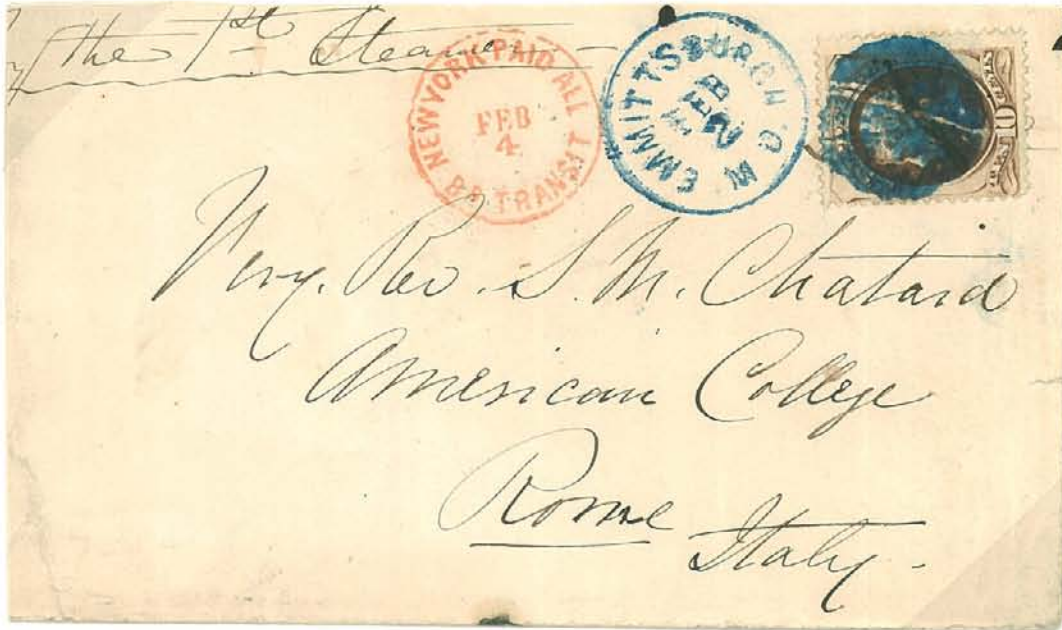 the 1st Steamer
NEW YORK PAID ALL
FEB
4
BR TRANSIT
EMMITTSBURGH MD
FEB
2
10
Very. Rev. S. M. Chatard
American College
Rome
Italy.